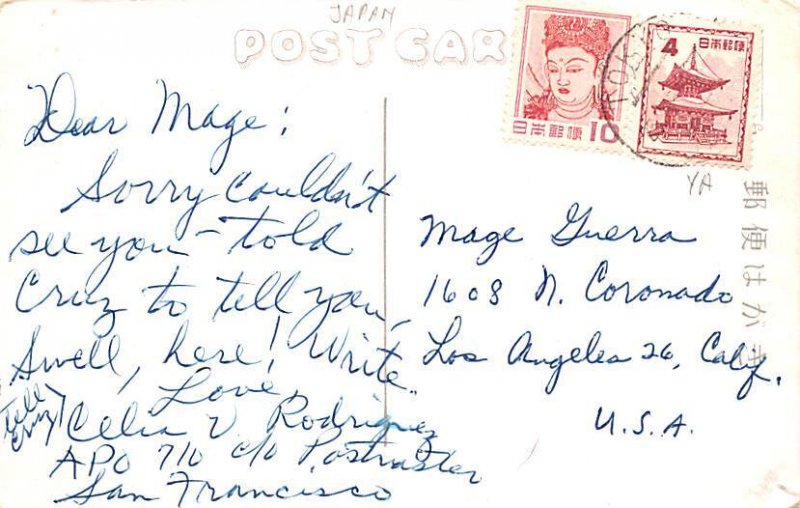 JAPAN
POST CAR
Dear Mage:
Sorry couldn't
see you – told
Cruz to tell you,
Swell, here! Write.
Love,
Celia V. Rodriguez
APO 710 c/o Postmaster
San Francisco
Tell
Cruz
日本郵便 10
4 日本郵便
TOKYO
YA
Mage Guerra
1608 N. Coronado
Los Angeles 26, Calif.
U.S.A.
郵便はが